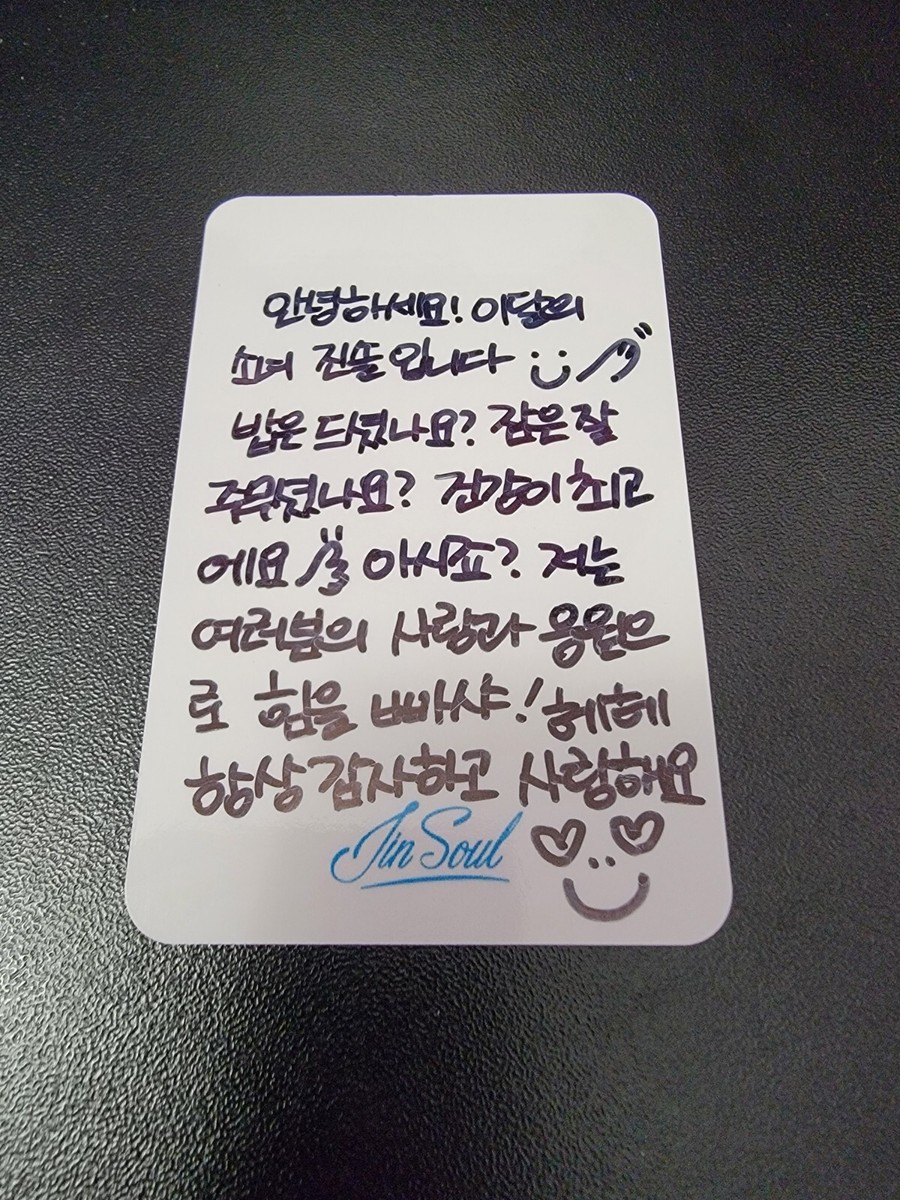 안녕하세요! 이달의
소녀 진쏠입니다
밥은 드셨나요? 잠은 잘
주무셨나요? 건강이 최고
에요 아시죠? 저는
여러분의 사랑과 응원으
로 힘을 빠샤! 헤헤
항상 감사하고 사랑해요
Jin Soul